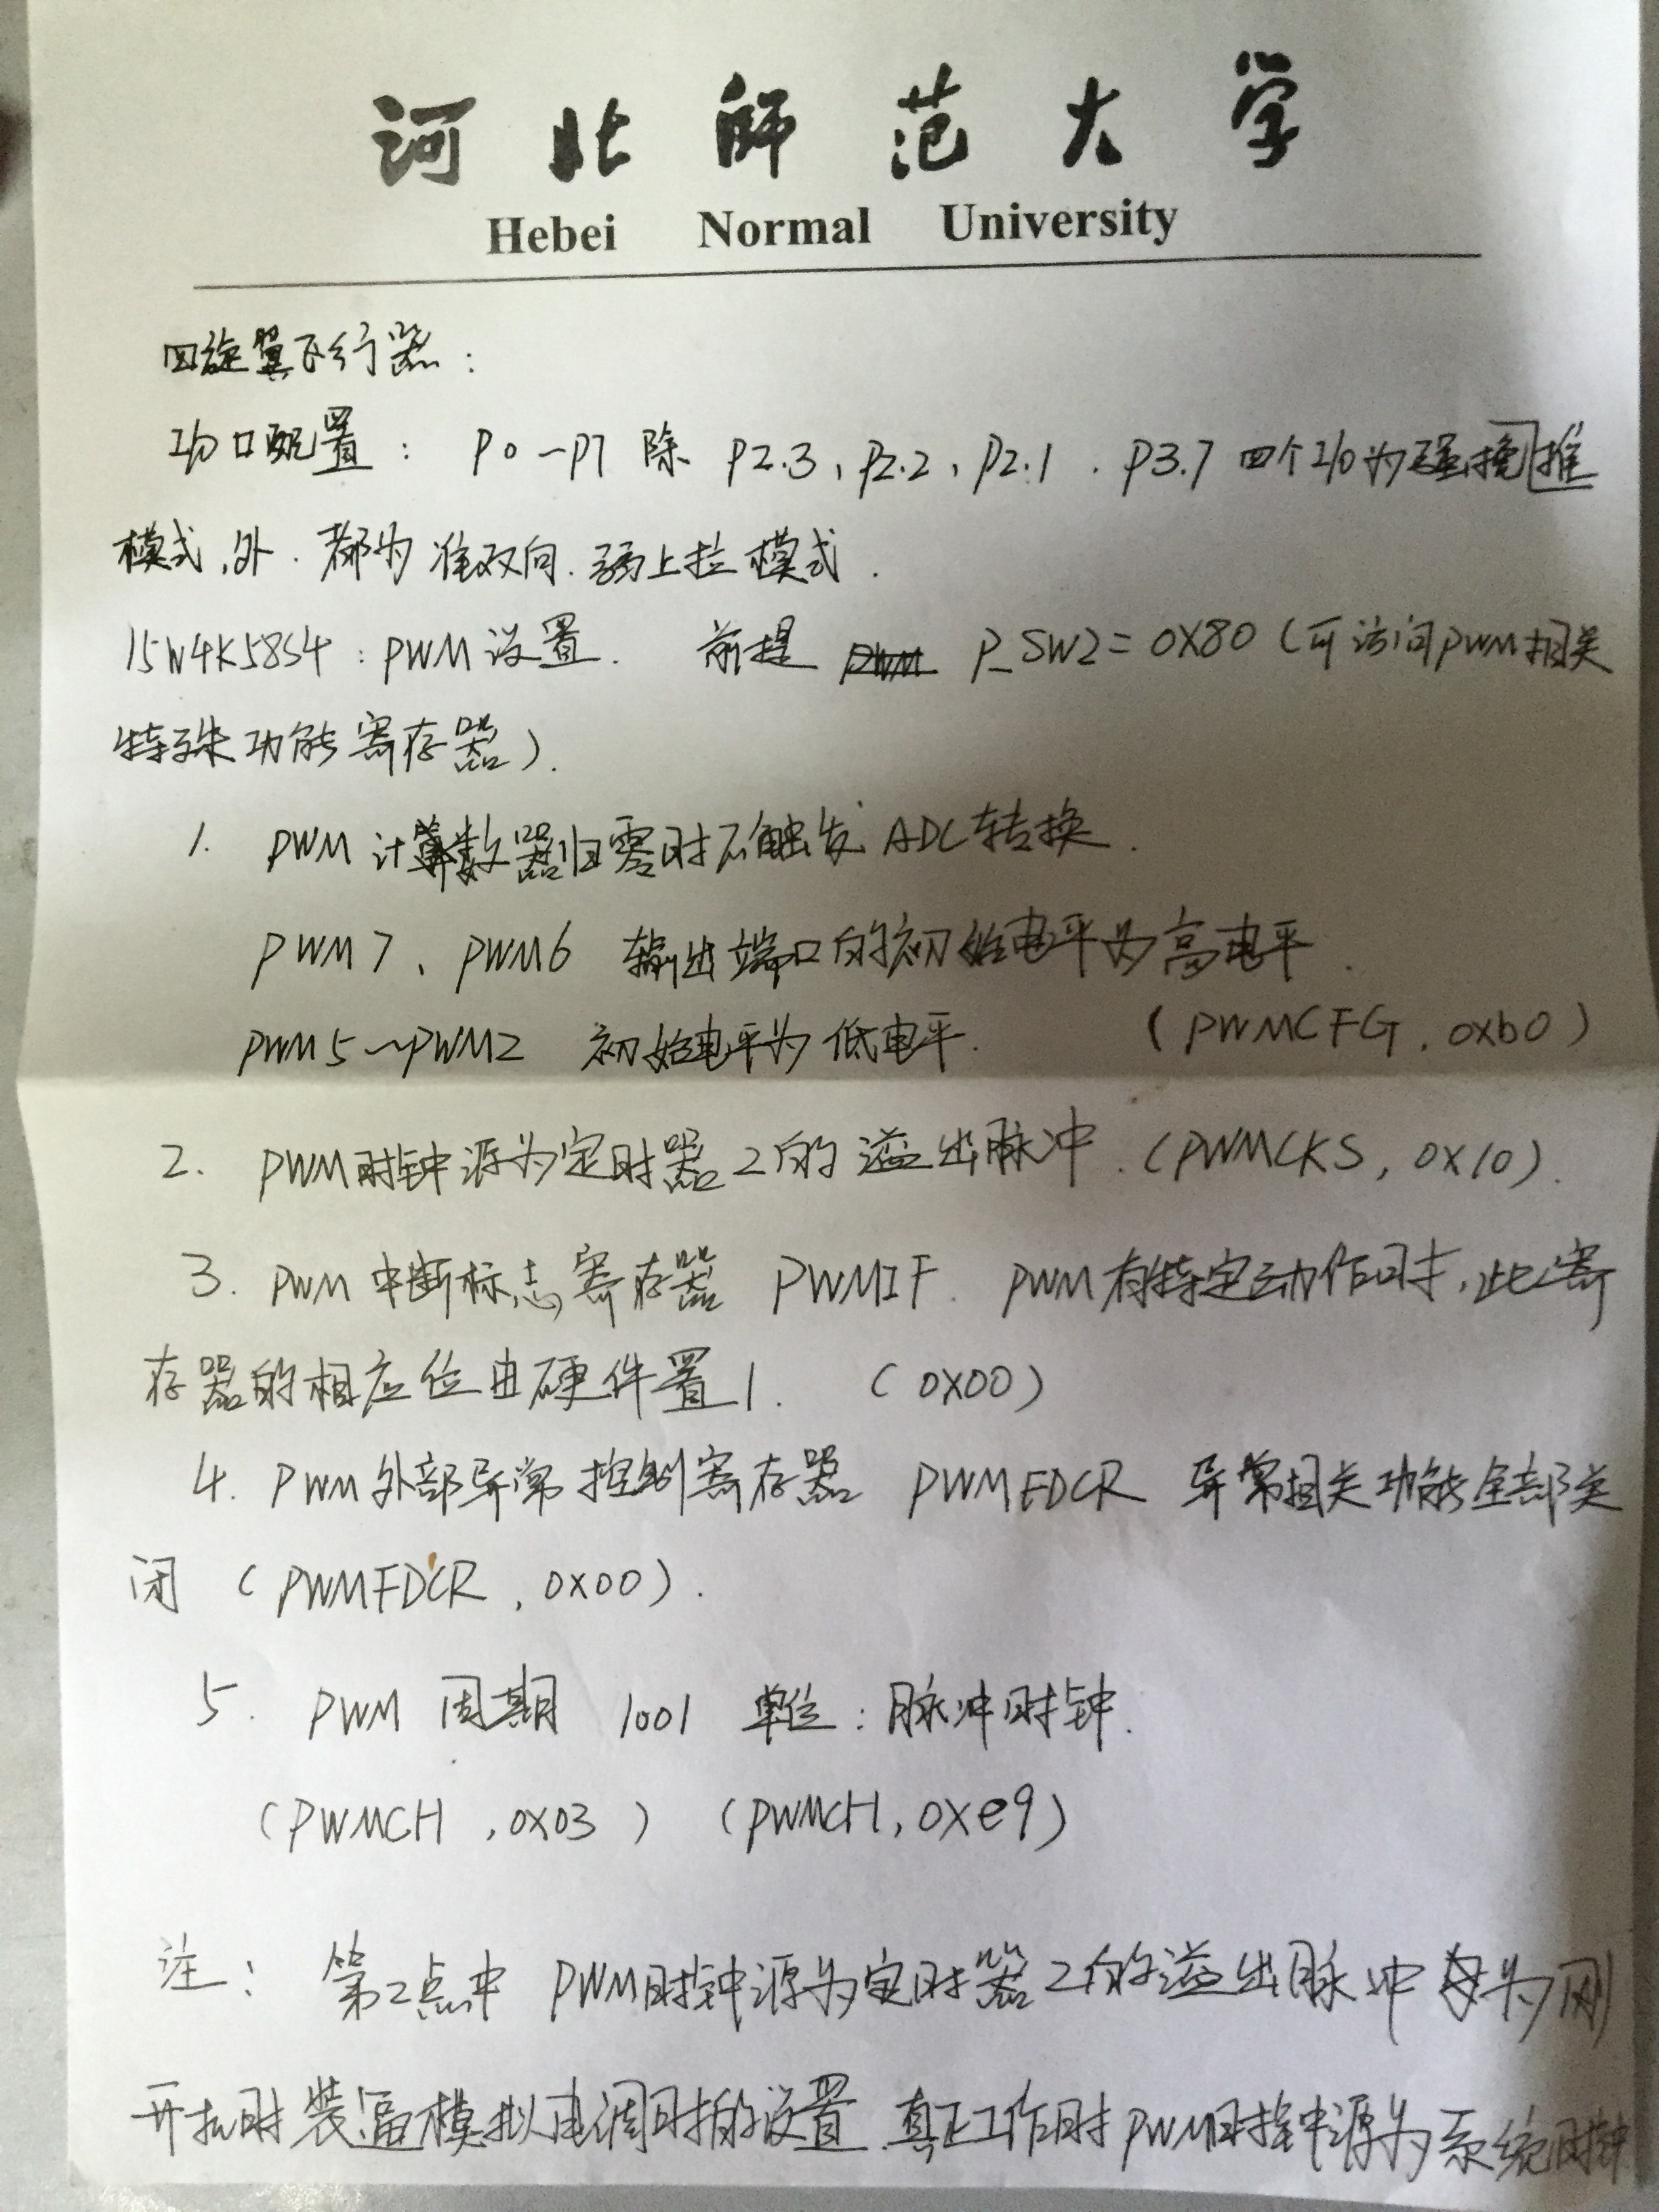 河北师范大学
Hebei Normal University
四旋翼飞行器：
I/O口配置： P0~P7 除 P2.3，P2.2，P2.1．P3.7 四个I/O为强推
模式，外．都为准双向．弱上拉模式．
15W4K58S4：PWM设置． 前提 P_SW2=0X80（可访问PWM相关
特殊功能寄存器）．
1． PWM计数器归零时不触发ADC转换．
PWM7、PWM6 输出端口的初始电平为高电平．
PWM5~PWM2 初始电平为低电平． （PWMCFG，0xb0）
2． PWM时钟源为定时器2的溢出脉冲．（PWMCKS，0X10）．
3．PWM中断标志寄存器 PWMIF． PWM有特定动作时，此寄
存器的相应位由硬件置1． （0X00）
4．PWM外部异常控制寄存器 PWMFDCR 异常相关功能全部关
闭 （PWMFDCR，0X00）．
5． PWM 周期 1001 单位：脉冲时钟．
（PWMCH，0X03） （PWMCH，0Xe9）
注： 第2点中 PWM时钟源为定时器2的溢出脉冲 为刚
开机时 模拟电调时的设置．真正工作时PWM时钟源为系统时钟